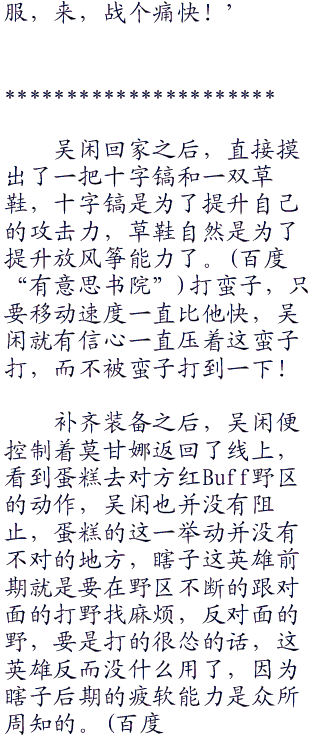 服，来，战个痛快！’
**********************
吴闲回家之后，直接摸
出了一把十字镐和一双草
鞋，十字镐是为了提升自己
的攻击力，草鞋自然是为了
提升放风筝能力了。(百度
“有意思书院”)打蛮子，只
要移动速度一直比他快，吴
闲就有信心一直压着这蛮子
打，而不被蛮子打到一下！
补齐装备之后，吴闲便
控制着莫甘娜返回了线上，
看到蛋糕去对方红Buff野区
的动作，吴闲也并没有阻
止，蛋糕的这一举动并没有
不对的地方，瞎子这英雄前
期就是要在野区不断的跟对
面的打野找麻烦，反对面的
野，要是打的很怂的话，这
英雄反而没什么用了，因为
瞎子后期的疲软能力是众所
周知的。(百度